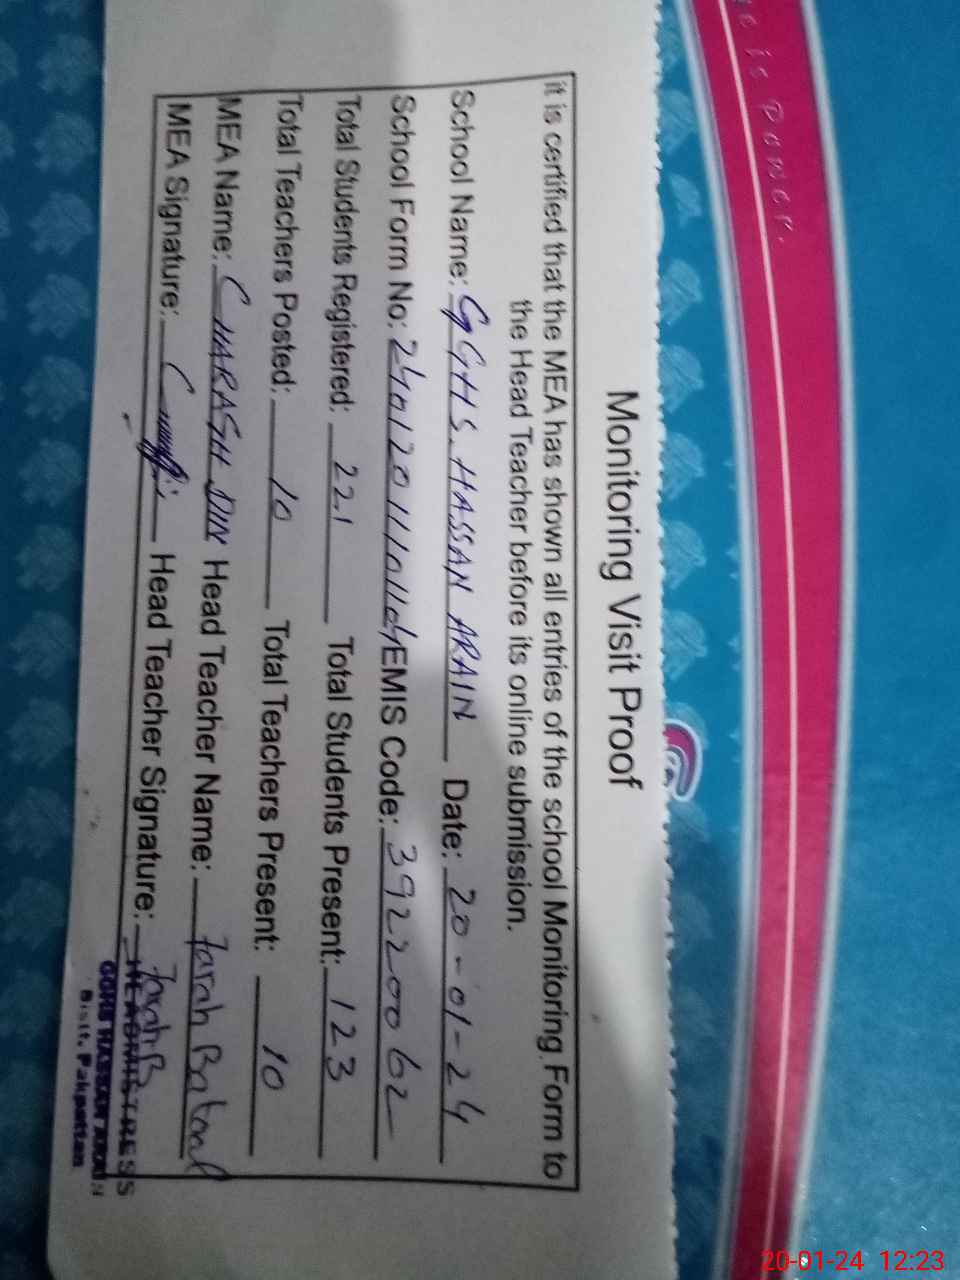 is Power.
Monitoring Visit Proof
it is certified that the MEA has shown all entries of the school Monitoring Form to
the Head Teacher before its online submission.
School Name: GGHS. HASSAN ARAIN Date: 20-01-24
School Form No: EMIS Code: 39220062
Total Students Registered: 221 Total Students Present: 123
Total Teachers Posted: 10 Total Teachers Present: 10
MEA Name: CHARAGH DIN Head Teacher Name: Farah Batool
MEA Signature: Head Teacher Signature: Farah B
HEADMISTRESS
GGHS HASSAN ARAIN
Distt. Pakpattan
20-01-24 12:23